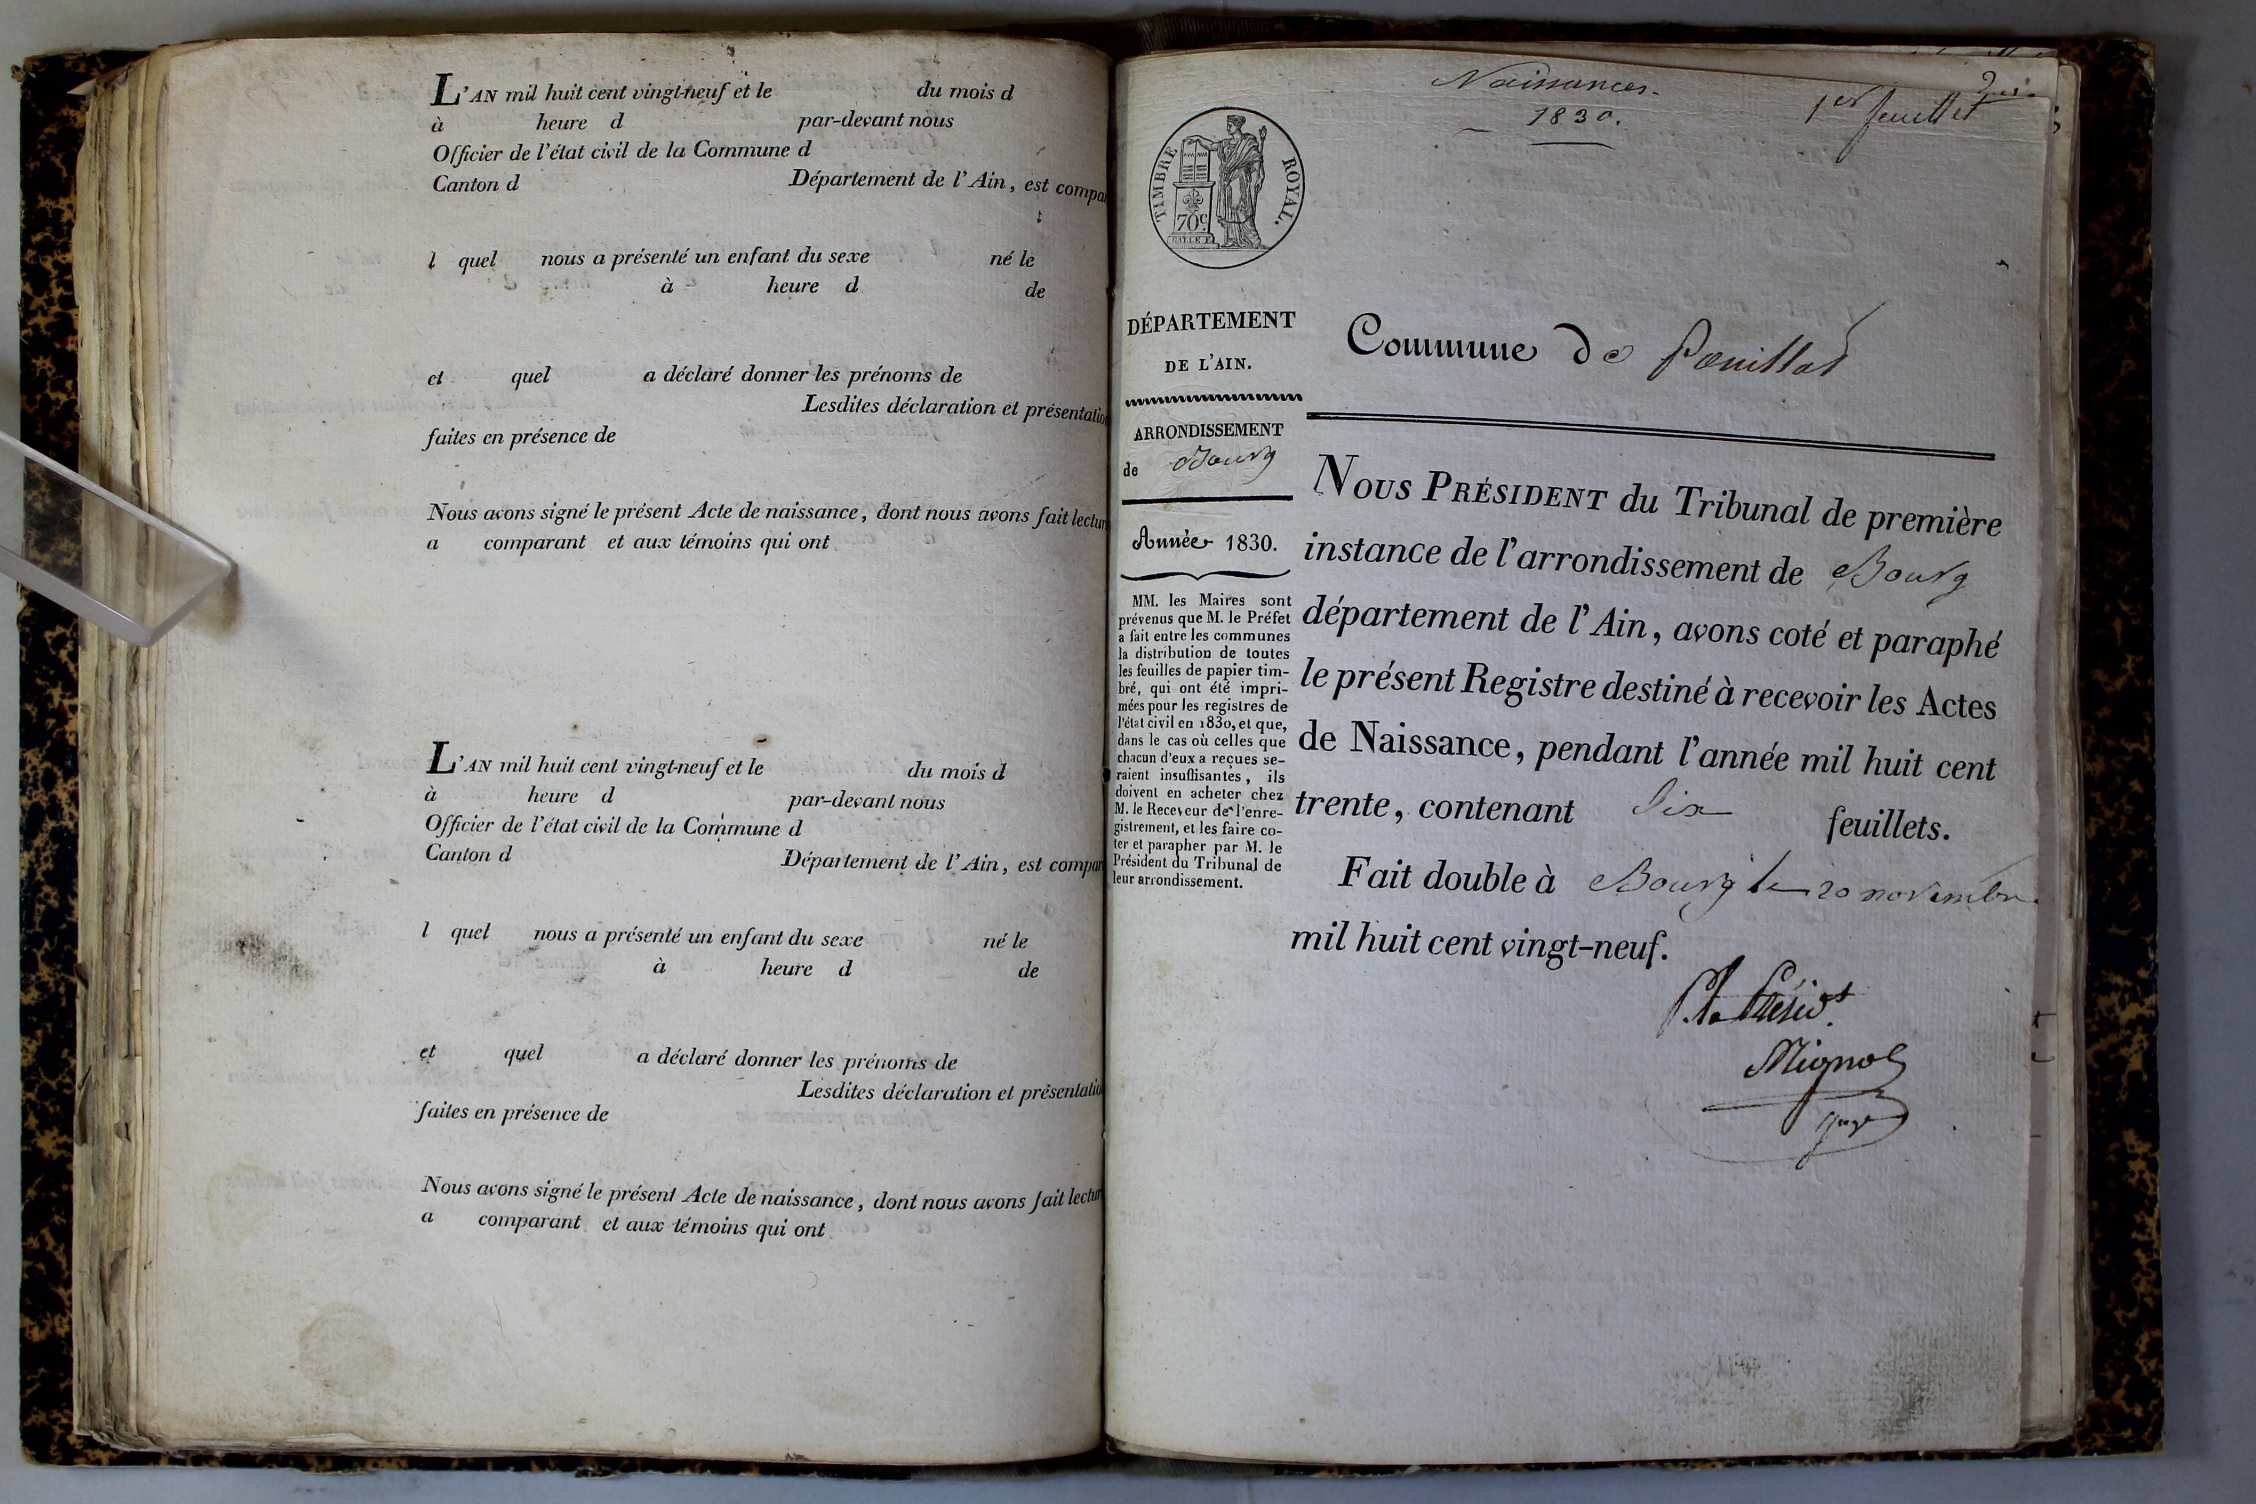 L'AN mil huit cent vingt-neuf et le du mois d
à heure d par-devant nous
Officier de l'état civil de la Commune d
Canton d Département de l'Ain, est compar
l quel nous a présenté un enfant du sexe né le
à heure d de
et quel a déclaré donner les prénoms de
Lesdites déclaration et présentation
faites en présence de
Nous avons signé le présent Acte de naissance, dont nous avons fait lectur
a comparant et aux témoins qui ont
L'AN mil huit cent vingt-neuf et le du mois d
à heure d par-devant nous
Officier de l'état civil de la Commune d
Canton d Département de l'Ain, est compar
l quel nous a présenté un enfant du sexe né le
à heure d de
et quel a déclaré donner les prénoms de
Lesdites déclaration et présentatio
faites en présence de
Nous avons signé le présent Acte de naissance, dont nous avons fait lectur
a comparant et aux témoins qui ont
Naissances.
1830.
1er feuillet
TIMBRE ROYAL.
70c.
DÉPARTEMENT
DE L'AIN.
ARRONDISSEMENT
de Bourg
Année 1830.
MM. les Maires sont
prévenus que M. le Préfet
a fait entre les communes
la distribution de toutes
les feuilles de papier tim-
bré, qui ont été impri-
mées pour les registres de
l'état civil en 1830, et que,
dans le cas où celles que
chacun d'eux a reçues se-
raient insuffisantes, ils
doivent en acheter chez
M. le Receveur de l'enre-
gistrement, et les faire co-
ter et parapher par M. le
Président du Tribunal de
leur arrondissement.
Commune de Pouillat
NOUS PRÉSIDENT du Tribunal de première
instance de l'arrondissement de Bourg
département de l'Ain, avons coté et paraphé
le présent Registre destiné à recevoir les Actes
de Naissance, pendant l'année mil huit cent
trente, contenant six feuillets.
Fait double à Bourg le 20 novembre
mil huit cent vingt-neuf.
P. le Présidt
Mignot
Juge